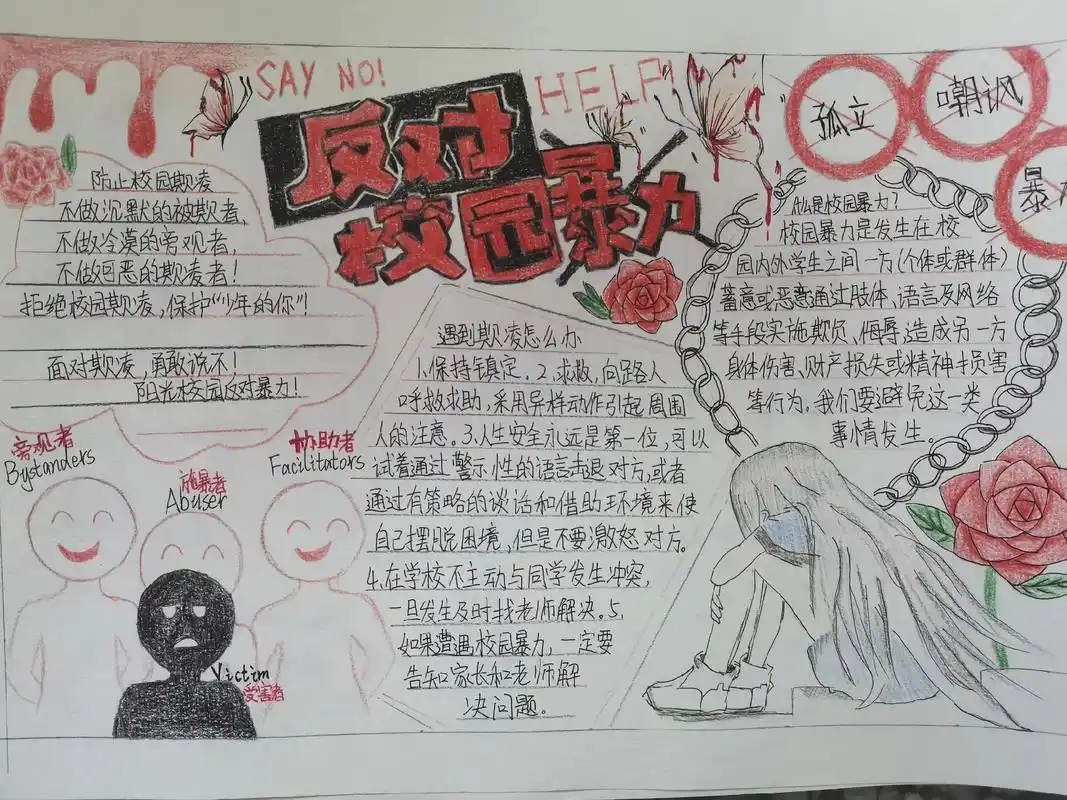 SAY NO!
HELP!
反对
校园暴力
孤立
嘲讽
暴
防止校园欺凌
不做沉默的被欺者,
不做冷漠的旁观者,
不做包恶的欺凌者!
拒绝校园欺凌,保护“少年的你”!
面对欺凌,勇敢说不!
阳光校园反对暴力!
什么是校园暴力?
校园暴力是发生在校
园内外学生之间一方(个体或群体)
蓄意或恶意通过肢体、语言及网络
等手段实施欺负、侮辱,造成另一方
身体伤害、财产损失或精神损害
等行为。我们要避免这一类
事情发生。
遇到欺凌怎么办
1.保持镇定。2.求救,向路人
呼救求助,采用异样动作引起周围
人的注意。3.人生安全永远是第一位,可以
试着通过警示性的语言击退对方,或者
通过有策略的谈话和借助环境来使
自己摆脱困境,但是不要激怒对方。
4.在学校不主动与同学发生冲突,
一旦发生及时找老师解决。5.
如果遭遇校园暴力,一定要
告知家长和老师解
决问题。
旁观者
Bystanders
施暴者
Abuser
协助者
Facilitators
Victim
受害者